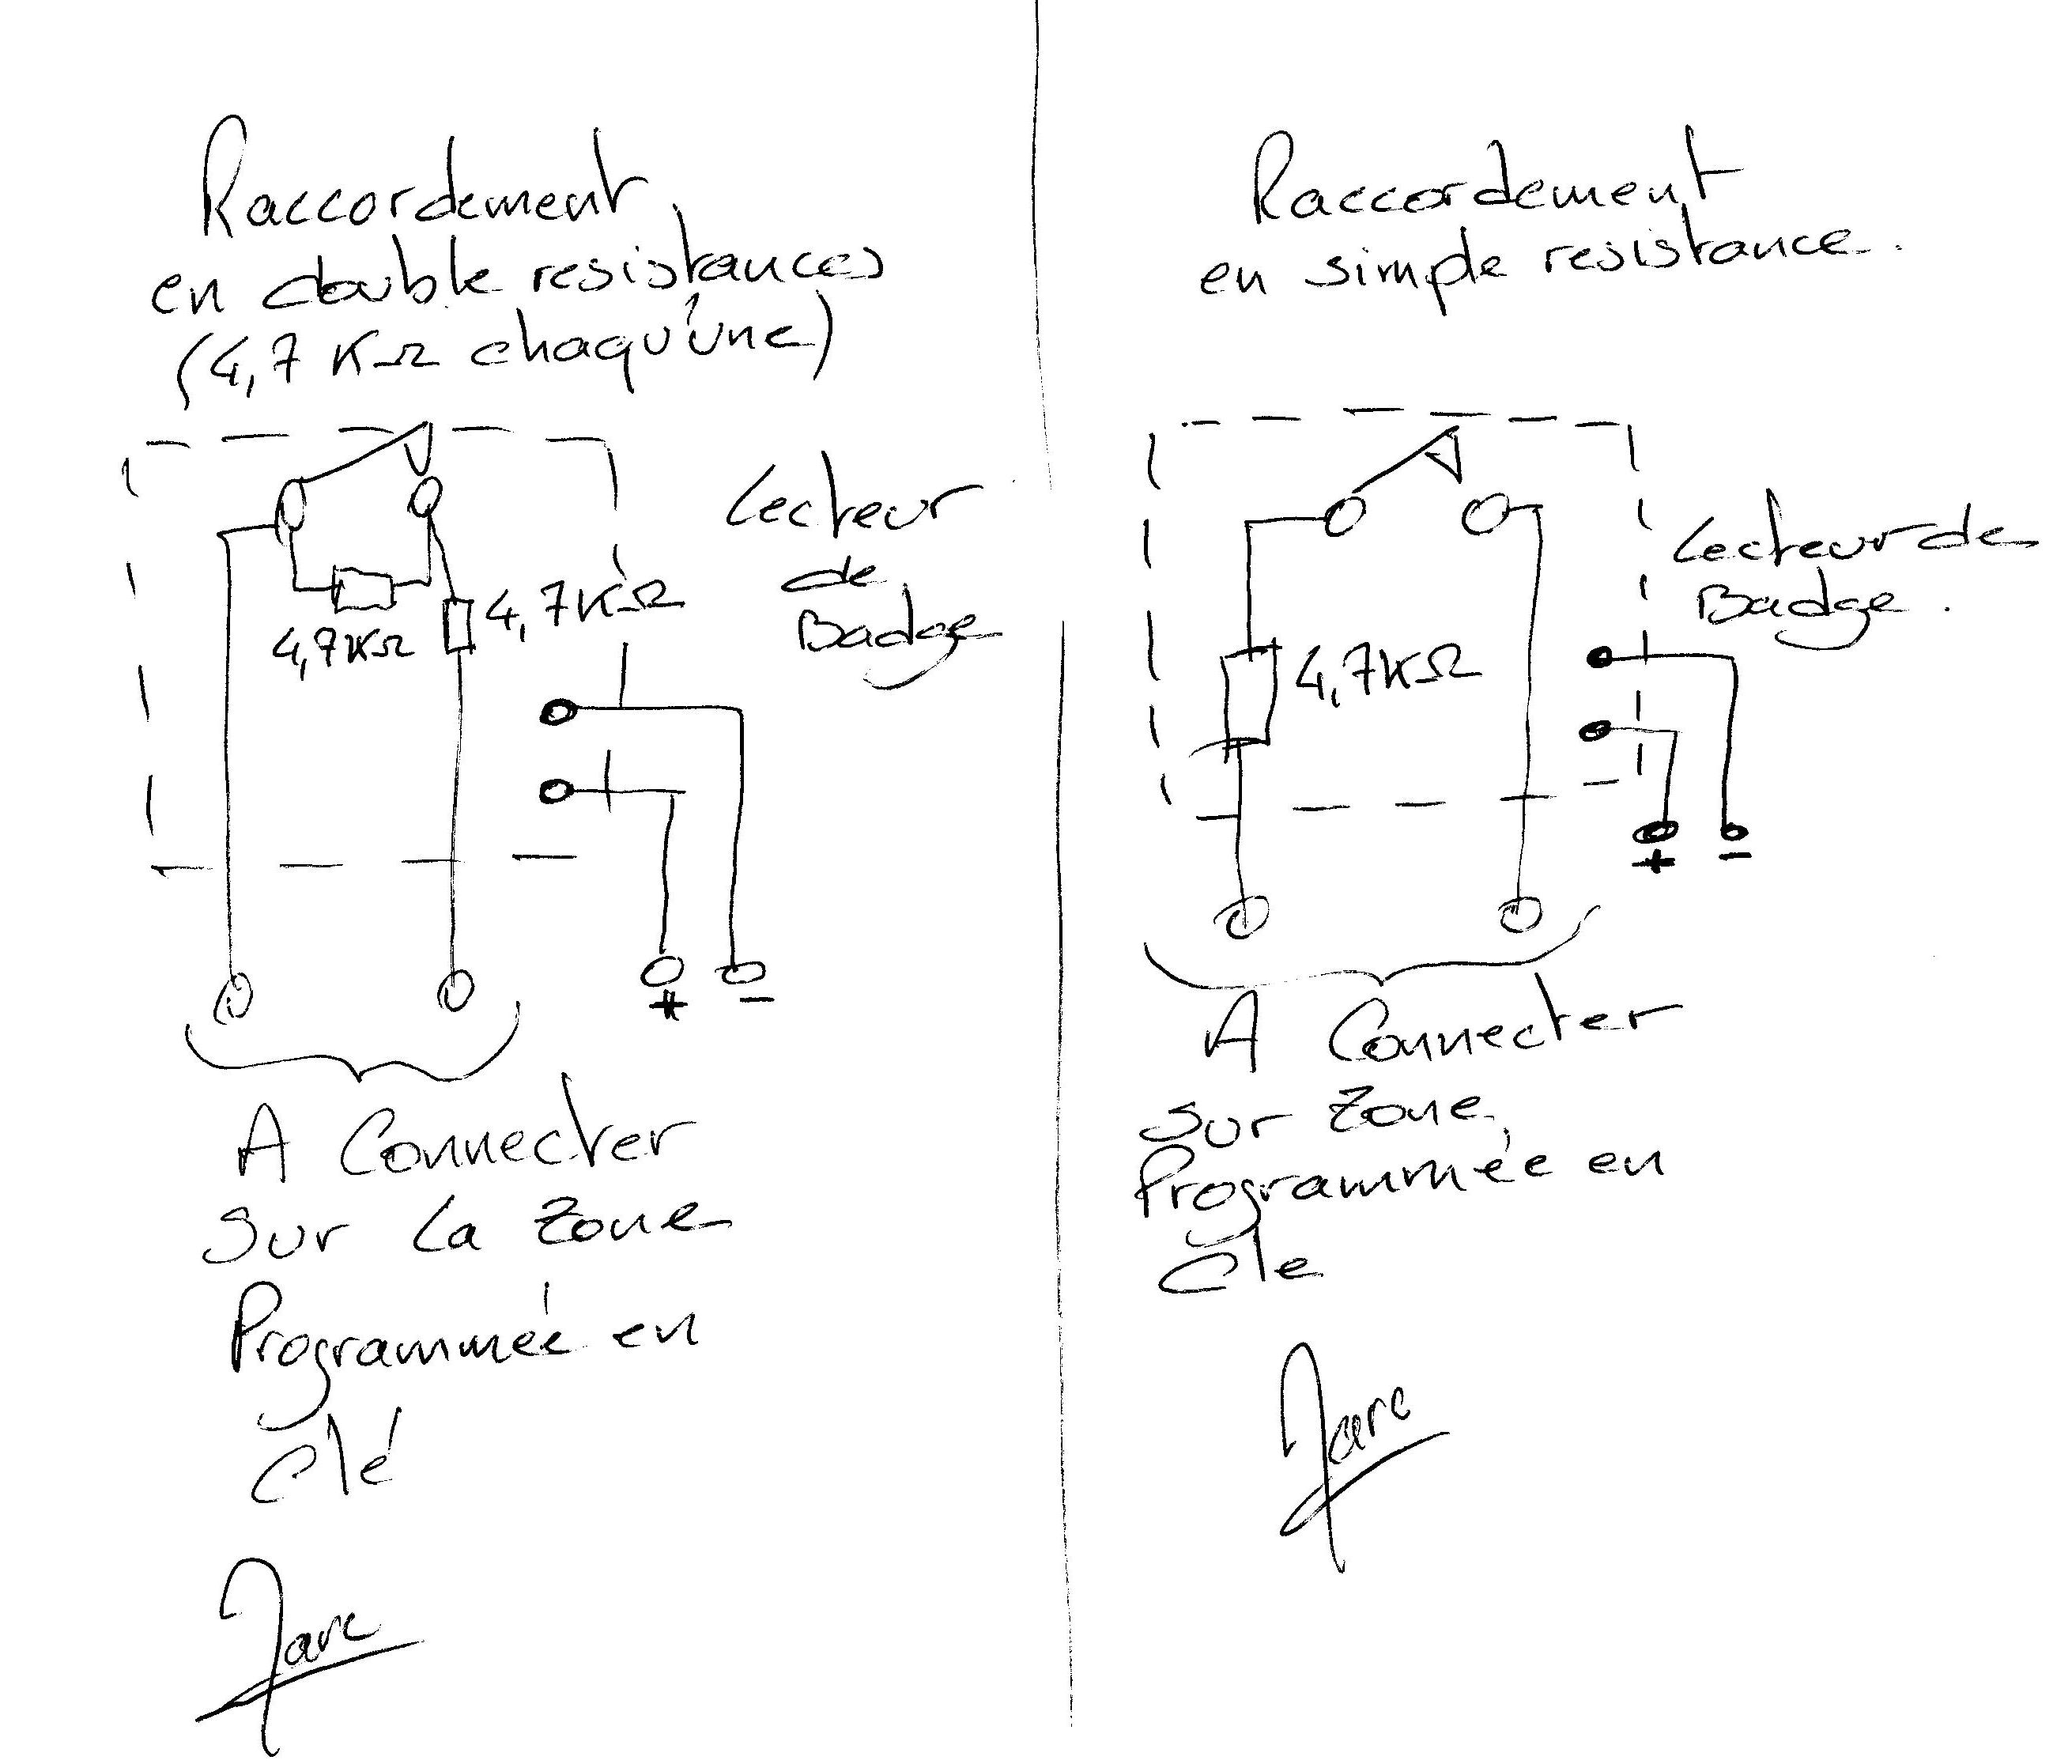 Raccordement
en double resistances
(4,7 KΩ chaqu'une)
Lecteur
de
Badge
4,7KΩ
4,7KΩ
+ -
A Connecter
Sur La Zone
Programmée en
Clé
Raccordement
en simple resistance.
Lecteur de
Badge.
4,7KΩ
+ -
A Connecter
Sur Zone
Programmée en
Cle